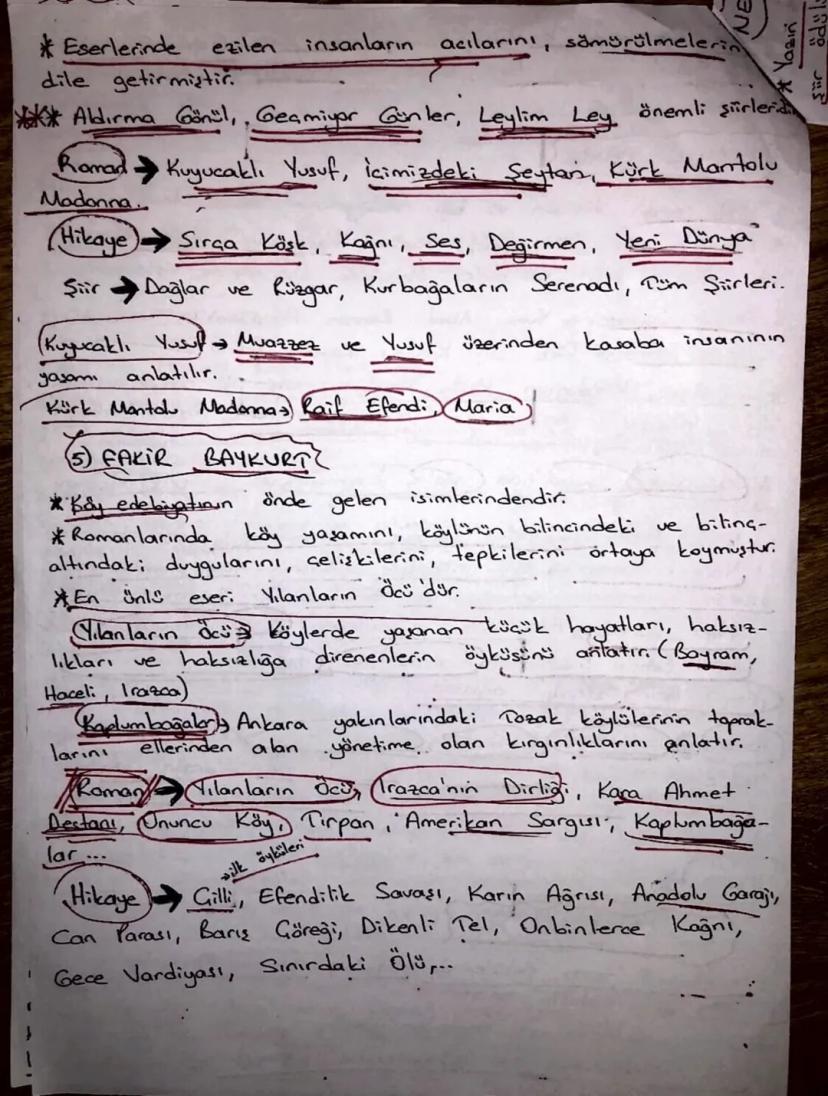 * Eserlerinde ezilen insanların acılarını, sömürülmelerin
dile getirmiştir.
*** Aldırma Gönül, Geçmiyor Günler, Leylim Ley önemli şiirleridi
Roman → Kuyucaklı Yusuf, İçimizdeki Şeytan, Kürk Mantolu
Madonna.
Hikaye → Sırça Köşk, Kağnı, Ses, Değirmen, Yeni Dünya
Şiir → Dağlar ve Rüzgar, Kurbağaların Serenadı, Tüm Şiirleri.
Kuyucaklı Yusuf → Muazzez ve Yusuf üzerinden kasaba insanının
yaşamı anlatılır.
Kürk Mantolu Madonna → Raif Efendi, Maria
5) FAKİR BAYKURT
* Köy edebiyatının önde gelen isimlerindendir.
* Romanlarında köy yaşamını, köylünün bilincindeki ve bilinç-
altındaki duygularını, çelişkilerini, tepkilerini ortaya koymuştur.
* En ünlü eseri Yılanların Öcü'dür.
Yılanların Öcü → Köylerde yaşanan küçük hayatları, haksız-
lıkları ve haksızlığa direnenlerin öyküsünü anlatır. (Bayram,
Haceli, Irazca)
Kaplumbağalar → Ankara yakınlarındaki Tozak köylülerinin toprak-
larını ellerinden alan yönetime olan kırgınlıklarını anlatır.
Roman → Yılanların Öcü, Irazca'nın Dirliği, Kara Ahmet
Destanı, Onuncu Köy, Tırpan, Amerikan Sargısı, Kaplumbağa-
lar...
→ ilk öyküleri
Hikaye → Çilli, Efendilik Savaşı, Karın Ağrısı, Anadolu Garajı,
Can Parası, Barış Çöreği, Dikenli Tel, Onbinlerce Kağnı,
Gece Vardiyası, Sınırdaki Ölü,...
NE
* Yazın
şiir ödül